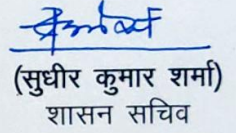 (सुधीर कुमार शर्मा)
शासन सचिव